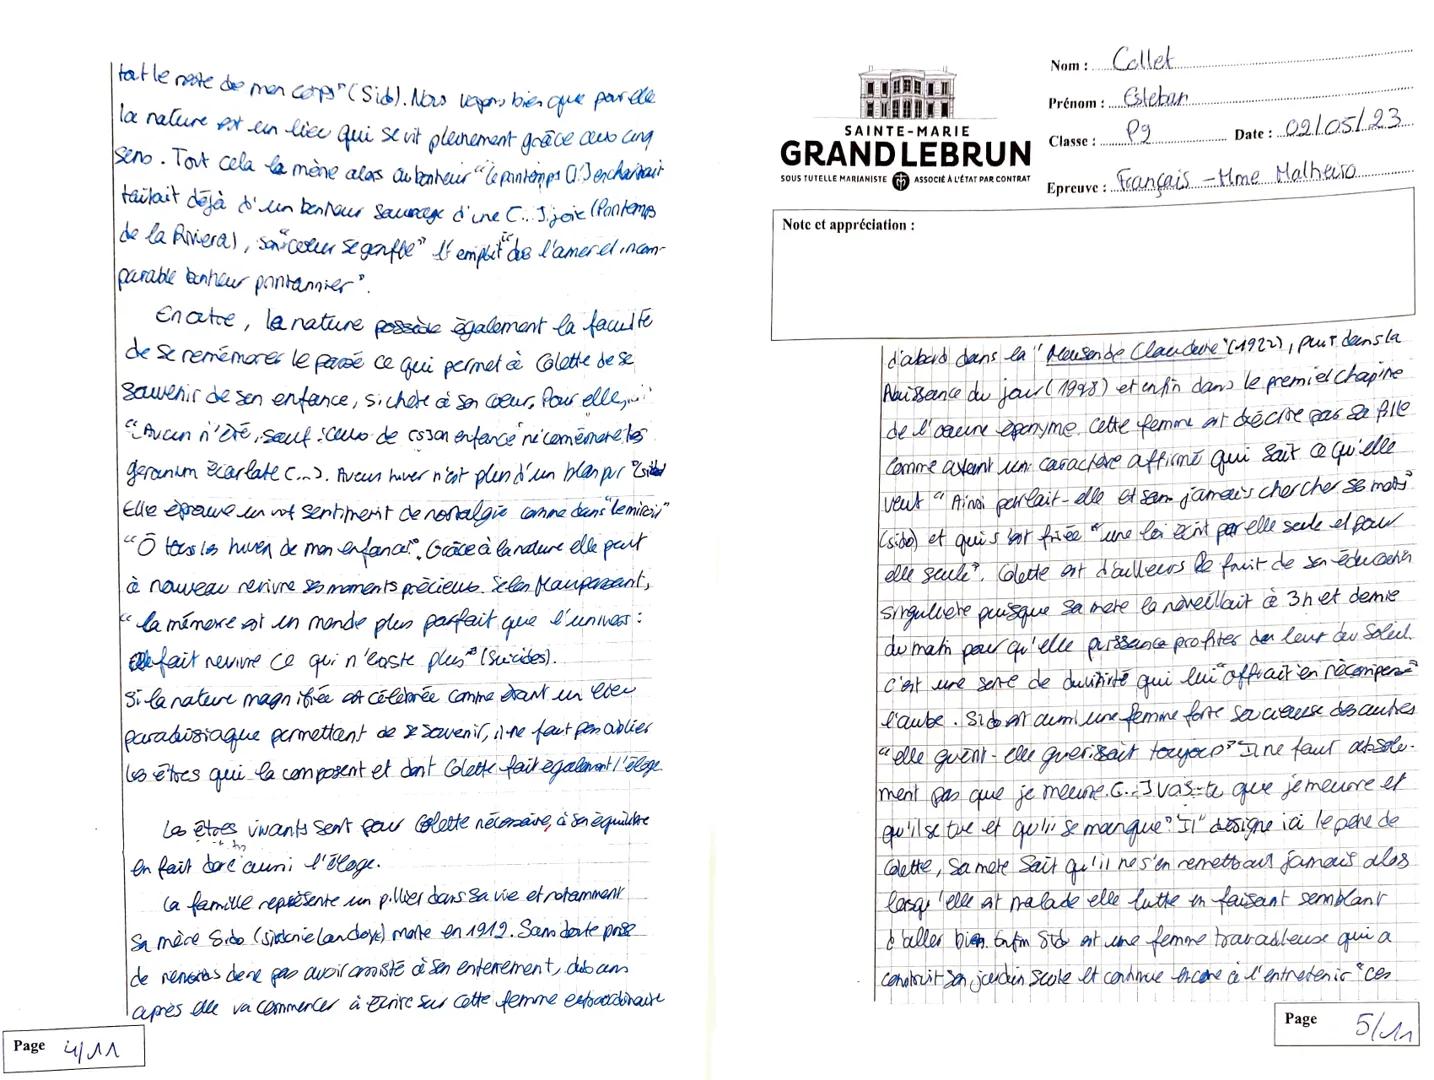 tout le reste de mon corps" (Sido). Nous voyons bien que pour elle
la nature est un lieu qui se vit pleinement grâce aux cinq
sens. Tout cela la mène alors au bonheur "le printemps [...] enchantait
tailait déjà d'un bonheur sauvage d'une [...] joie (Printemps
de la Riviera), son "coeur se gonfle" l'emplit "de l'amer et incom-
parable bonheur printannier".
En outre, la nature possède également la faculté
de se remémorer le passé ce qui permet à Colette de se
souvenir de son enfance, si chère à son coeur. Pour elle,
"Aucun n'été, sauf ceux de son enfance" ne commémore les
geranium écarlate (...). Aucun hiver n'est plus d'un blanc pur "(Sido
Elle éprouve un vif sentiment de nostalgie comme dans "le miroir"
"Ô tous les hivers de mon enfance!". Grâce à la nature elle peut
à nouveau revivre ses moments précieux. Selon Maupassant,
"la mémoire est un monde plus parfait que l'univers :
elle fait revivre ce qui n'existe plus" (Suicides).
Si la nature magnifiée est célébrée comme étant un lieu
paradisiaque permettant de se souvenir, il ne faut pas oublier
les êtres qui la composent et dont Colette fait également l'éloge.
Les êtres vivants sont pour Colette nécessaire, à son équilibre
en fait donc aussi l'éloge.
La famille représente un pillier dans sa vie et notamment
sa mère Sido (Sidonie Landoy) morte en 1912. Sans doute prise
de remords de ne pas avoir assisté à son enterrement, dix ans
après elle va commencer à écrire sur cette femme extraordinaire
Page 4/11
SAINTE-MARIE
GRAND LEBRUN
SOUS TUTELLE MARIANISTE ASSOCIÉ À L'ÉTAT PAR CONTRAT
Nom : Collet
Prénom : Esteban
Classe : P9 Date : 02/05/23
Epreuve : Français - Mme Malheiro
Note et appréciation :
d'abord dans la "Maison de Claudine" (1922), puis dans la
Naissance du jour (1928) et enfin dans le premier chapitre
de l'oeuvre éponyme. Cette femme est décrite par sa fille
comme ayant un caractère affirmé qui sait ce qu'elle
veut "Ainsi parlait-elle et sans jamais chercher ses mots"
(Sido) et qui s'est fixée "une loi écrit par elle seule et pour
elle seule". Colette est d'ailleurs le fruit de son éducation
singulière puisque sa mère la réveillait à 3h et demie
du matin pour qu'elle puisse profiter du lever du Soleil.
C'est une sorte de qui lui "offrait en récompense"
l'aube. Sido est aussi une femme forte des autres
"elle guérit - elle guérissait toujours" "Il ne faut absolu-
ment pas que je meure. [...] vas-tu que je meurre et
qu'il se tue et qu'il se manque". "Il" désigne ici le père de
Colette, sa mère sait qu'il ne s'en remettrait jamais alors
lorsqu'elle est malade elle lutte en faisant semblant
d'aller bien. Enfin Sido est une femme travailleuse qui a
construit son jardin seule et continue encore à l'entretenir "ces
Page 5/11